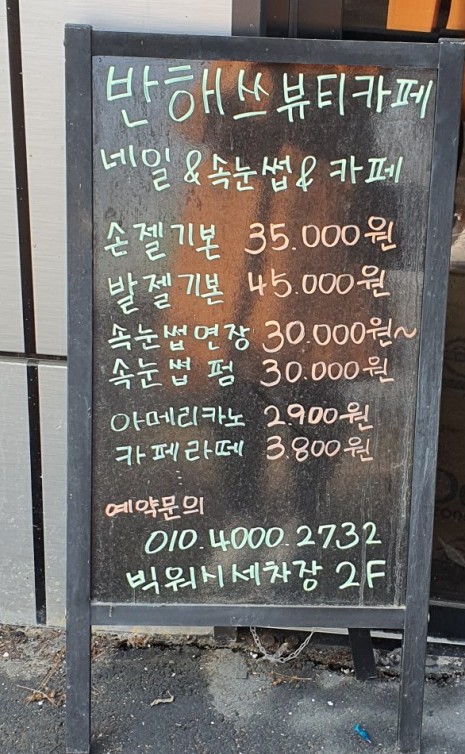 반해쓰뷰티카페
네일 & 속눈썹 & 카페
손젤기본 35.000원
발젤기본 45.000원
속눈썹연장 30.000원~
속눈썹 펌 30.000원
아메리카노 2.900원
카페라떼 3.800원
예약문의
010.4000.2732
빅워시세차장 2F